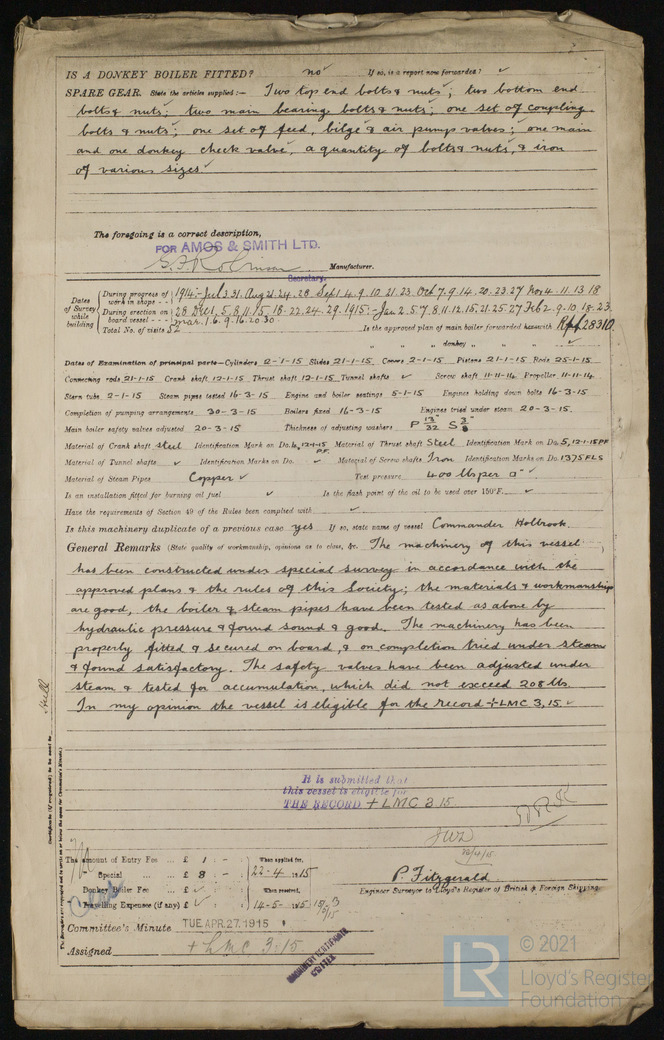 IS A DONKEY BOILER FITTED? no ✓ If so, is a report now forwarded? ✓
SPARE GEAR. State the articles supplied:— Two top end bolts & nuts; two bottom end
bolts & nuts; two main bearing bolts & nuts; one set of coupling
bolts & nuts; one set of feed, bilge & air pump valves; one main
and one donkey check valve, a quantity of bolts & nuts, & iron
of various sizes
The foregoing is a correct description,
FOR AMOS & SMITH LTD.
Manufacturer.
Secretary.
Dates of Survey while building
During progress of work in shops - - 1914:- Jul 3.31. Aug 21.24.28. Sep 1.4.9.10.21.23. Oct 7.9.14.20.23.27 Nov 4.11.13.18
During erection on board vessel - - - 28 Dec 1,5,8,11,15,18,22,24,29. 1915:- Jan 2.5.7.8.11.12.15.21.25.27 Feb 2.9.10.18.23.
Mar. 1.6.9.16.20.30
Total No. of visits 52 Is the approved plan of main boiler forwarded herewith Rpf 28310
" " " donkey " " " ✓
Dates of Examination of principal parts—Cylinders 2-1-15 Slides 21-1-15. Covers 2-1-15 Pistons 21-1-15 Rods 25-1-15
Connecting rods 21-1-15 Crank shaft 12-1-15 Thrust shaft 12-1-15 Tunnel shafts ✓ Screw shaft 11-11-14. Propeller 11-11-14.
Stern tube 2-1-15 Steam pipes tested 16-3-15 Engine and boiler seatings 5-1-15 Engines holding down bolts 16-3-15
Completion of pumping arrangements 30-3-15 Boilers fixed 16-3-15 Engines tried under steam 20-3-15.
Main boiler safety valves adjusted 20-3-15 Thickness of adjusting washers P 13/32" S 3/8"
Material of Crank shaft Steel Identification Mark on Do. 6, 12-1-15 PF. Material of Thrust shaft Steel Identification Mark on Do. 5, 12-1-15 PF
Material of Tunnel shafts ✓ Identification Marks on Do. ✓ Material of Screw shafts Iron Identification Marks on Do. 1375 FLS
Material of Steam Pipes Copper ✓ Test pressure 400 lbs per □" ✓
Is an installation fitted for burning oil fuel ✓ Is the flash point of the oil to be used over 150°F. ✓
Have the requirements of Section 49 of the Rules been complied with ✓
Is this machinery duplicate of a previous case yes If so, state name of vessel Commander Holbrook.
General Remarks (State quality of workmanship, opinions as to class, &c. The machinery of this vessel
has been constructed under special survey in accordance with the
approved plans & the rules of this Society; the materials & workmanship
are good, the boiler & steam pipes have been tested as above by
hydraulic pressure & found sound & good. The machinery has been
properly fitted & secured on board, & on completion tried under steam
& found satisfactory. The safety valves have been adjusted under
steam & tested for accumulation, which did not exceed 208 lbs.
In my opinion the vessel is eligible for the record +LMC 3,15. ✓
Hull
It is submitted that
this vessel is eligible for
THE RECORD + LMC 3.15.
JWD
The amount of Entry Fee ... £ 1 : - When applied for,
Special ... £ 8 : - 22-4-1915
Donkey Boiler Fee ... £ ✓ When received,
Travelling Expenses (if any) £ ✓ 14-5-1915
P. Fitzgerald
Engineer Surveyor to Lloyd's Register of British & Foreign Shipping.
Committee's Minute TUE. APR. 27. 1915
Assigned + LMC 3.15
MACHINERY CERTIFICATE
WRITTEN
LR © 2021
Lloyd's Register
Foundation